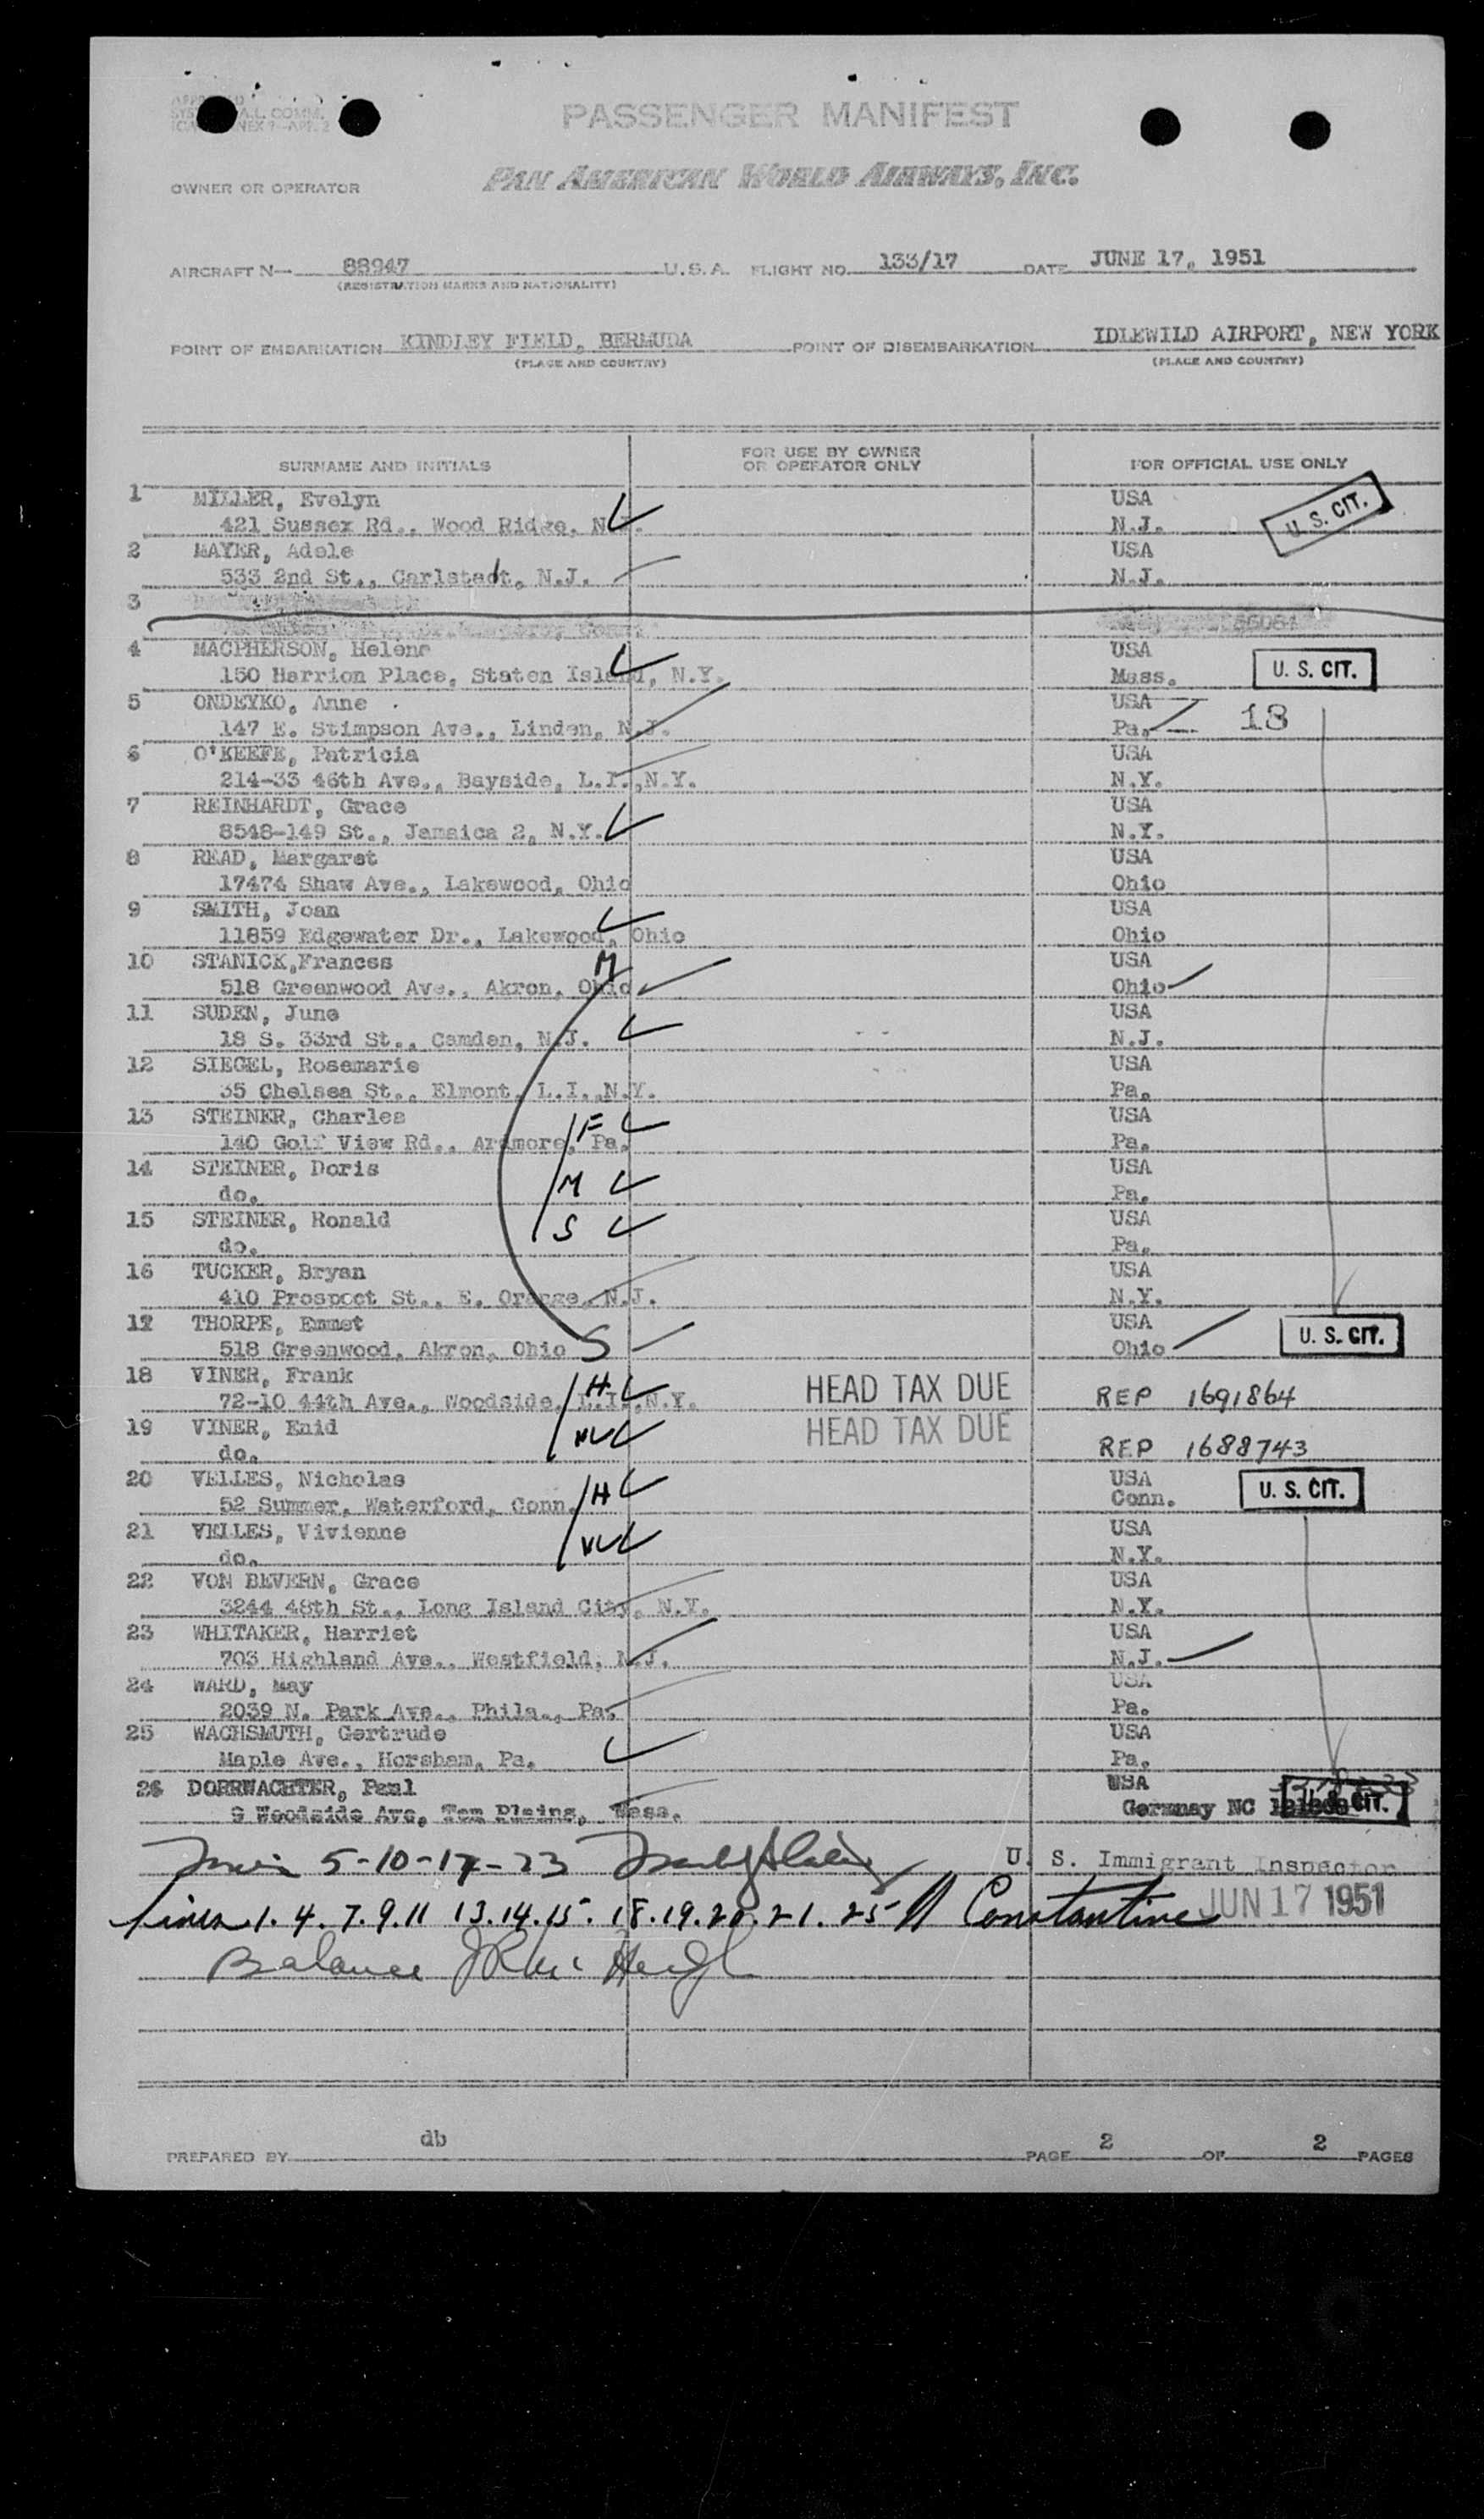 PASSENGER MANIFEST
PAN AMERICAN WORLD AIRWAYS, INC.
OWNER OR OPERATOR
AIRCRAFT N- 88947 U.S.A. FLIGHT NO. 133/17 DATE JUNE 17, 1951
(REGISTRATION MARKS AND NATIONALITY)
POINT OF EMBARKATION KINDLEY FIELD, BERMUDA POINT OF DISEMBARKATION IDLEWILD AIRPORT, NEW YORK
(PLACE AND COUNTRY) (PLACE AND COUNTRY)
SURNAME AND INITIALS FOR USE BY OWNER OR OPERATOR ONLY FOR OFFICIAL USE ONLY
1 MILLER, Evelyn USA
421 Sussex Rd., Wood Ridge, N.J. N.J. U. S. CIT.
2 MAYER, Adele USA
533 2nd St., Carlstadt, N.J. N.J.
3
4 MACPHERSON, Helene USA
150 Harrion Place, Staten Island, N.Y. Mass. U. S. CIT.
5 ONDEYKO, Anne USA
147 E. Stimpson Ave., Linden, N.J. Pa. 18
6 O'KEEFE, Patricia USA
214-33 46th Ave., Bayside, L.I.,N.Y. N.Y.
7 REINHARDT, Grace USA
8548-149 St., Jamaica 2, N.Y. N.Y.
8 READ, Margaret USA
17474 Shaw Ave., Lakewood, Ohio Ohio
9 SMITH, Joan USA
11859 Edgewater Dr., Lakewood, Ohio Ohio
10 STANICK,Frances M USA
518 Greenwood Ave., Akron, Ohio Ohio
11 SUDEN, June USA
18 S. 33rd St., Camden, N.J. N.J.
12 SIEGEL, Rosemarie USA
35 Chelsea St., Elmont, L.I.,N.Y. Pa.
13 STEINER, Charles F USA
140 Golf View Rd., Ardmore, Pa. Pa.
14 STEINER, Doris M USA
do. Pa.
15 STEINER, Ronald S USA
do. Pa.
16 TUCKER, Bryan USA
410 Prospect St., E. Orange, N.J. N.Y.
17 THORPE, Emmet USA
518 Greenwood, Akron, Ohio S Ohio U. S. CIT.
18 VINER, Frank H HEAD TAX DUE
72-10 44th Ave., Woodside, L.I.,N.Y. REP 1691864
19 VINER, Enid W HEAD TAX DUE
do. REP 1688743
20 VELLES, Nicholas H USA
52 Summer, Waterford, Conn. Conn. U. S. CIT.
21 VELLES, Vivienne W USA
do. N.Y.
22 VON BEVERN, Grace USA
3244 48th St., Long Island City, N.Y. N.Y.
23 WHITAKER, Harriet USA
703 Highland Ave., Westfield, N.J. N.J.
24 WARD, May USA
2039 N. Park Ave., Phila., Pa. Pa.
25 WACHSMUTH, Gertrude USA
Maple Ave., Horsham, Pa. Pa.
26 DORRWACHTER, Paul USA
9 Woodside Ave, Mass. Germnay NC U. S. CIT.
5-10-17-23 U. S. Immigrant Inspector
lines 1. 4. 7. 9. 11 13. 14. 15. 18. 19. 20. 21. 25 Constantine JUN 17 1951
Balance
PREPARED BY db PAGE 2 OF 2 PAGES